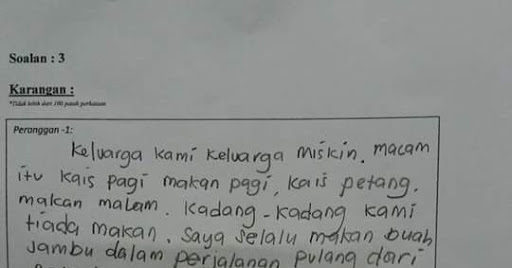 Soalan : 3
Karangan :
*Tidak lebih dari 100 patah perkataan
Peranggan -1:
Keluarga kami keluarga miskin. macam
itu kais pagi makan pagi, kais petang.
makan malam. Kadang-kadang kami
tiada makan. Saya selalu makan buah
jambu dalam perjalanan pulang dari